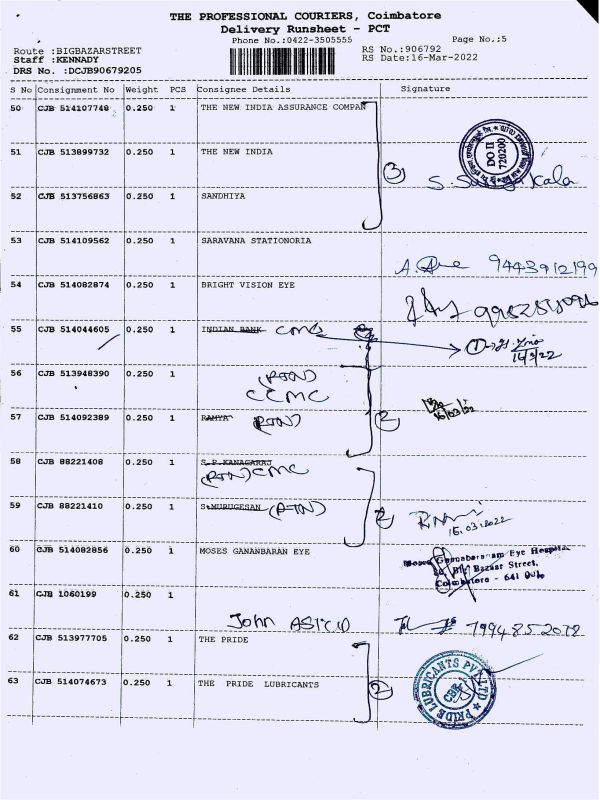 THE PROFESSIONAL COURIERS, Coimbatore
Delivery Runsheet - PCT
Phone No.:0422-3505555 Page No.:5
Route :BIGBAZARSTREET RS No.:906792
Staff :KENNADY RS Date:16-Mar-2022
DRS No. :DCJB90679205
S No Consignment No Weight PCS Consignee Details Signature
50 CJB 514107748 0.250 1 THE NEW INDIA ASSURANCE COMPAN
DO II
720200
51 CJB 513899732 0.250 1 THE NEW INDIA
3
52 CJB 513756863 0.250 1 SANDHIYA
53 CJB 514109562 0.250 1 SARAVANA STATIONORIA
9443912199
54 CJB 514082874 0.250 1 BRIGHT VISION EYE
55 CJB 514044605 0.250 1 INDIAN BANK CMC
1
16/3/22
56 CJB 513948390 0.250 1 (RTN)
CCMC
16/03/22
57 CJB 514092389 0.250 1 RAMYA (RTN) 2
58 CJB 88221408 0.250 1 S.P.KANAGARAJ
(RTN) CMC
59 CJB 88221410 0.250 1 S.MURUGESAN (RTN) 2
16/03/2022
60 CJB 514082856 0.250 1 MOSES GANANBARAN EYE
Eye Hospital
Bazaar Street,
Coimbatore - 641
61 CJB 1060199 0.250 1
John 7994852072
62 CJB 513977705 0.250 1 THE PRIDE
63 CJB 514074673 0.250 1 THE PRIDE LUBRICANTS 2
PRIDE LUBRICANTS PVT LTD
CBE